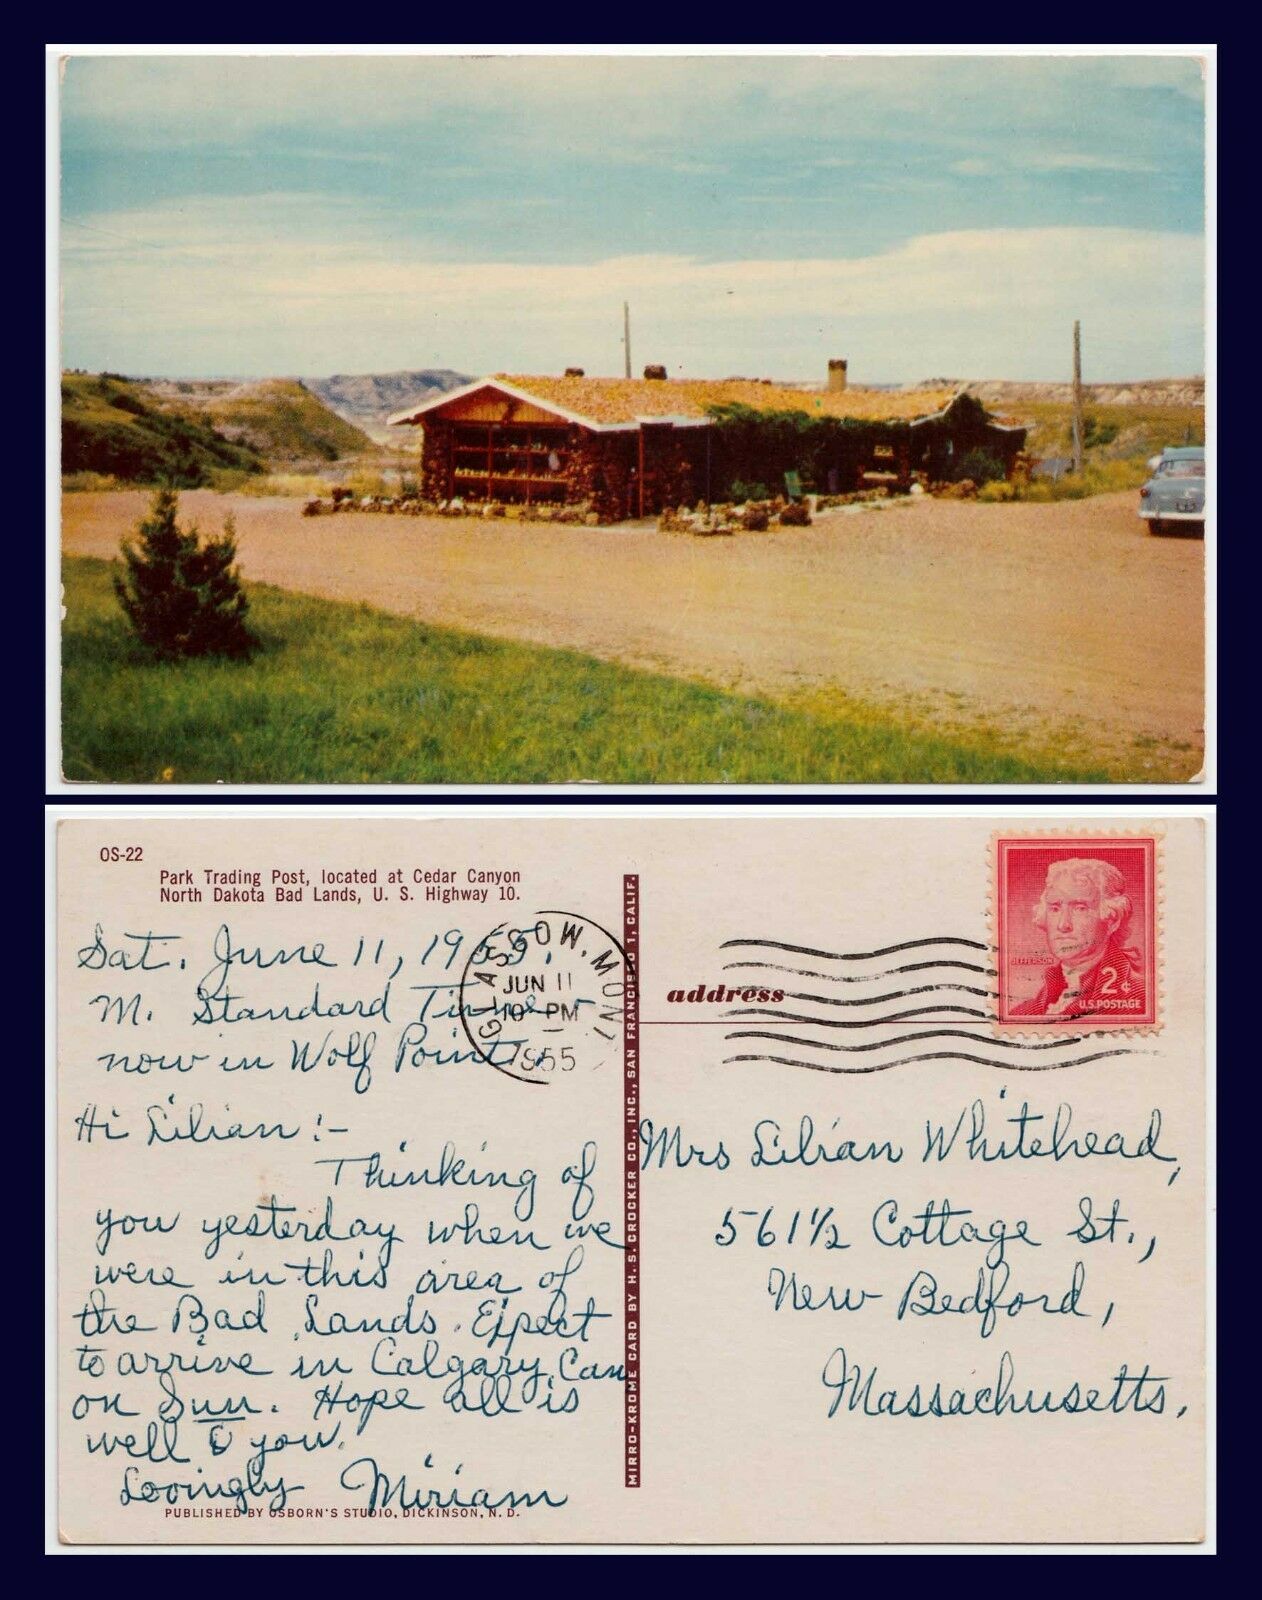 OS-22
Park Trading Post, located at Cedar Canyon
North Dakota Bad Lands, U. S. Highway 10.
Sat. June 11, 1955.
M. Standard Time
now in Wolf Point,
Hi Lilian:-
Thinking of
you yesterday when we
were in this area of
the Bad Lands. Expect
to arrive in Calgary, Can
on Sun. Hope all is
well c̄ you.
Lovingly Miriam
PUBLISHED BY OSBORN'S STUDIO, DICKINSON, N. D.
GLASGOW, MONT
JUN 11
10 PM
1955
MIRRO-KROME CARD BY H. S. CROCKER CO., INC., SAN FRANCISCO 1, CALIF.
JEFFERSON
2¢
U.S. POSTAGE
address
Mrs Lilian Whitehead,
561½ Cottage St.,
New Bedford,
Massachusetts.